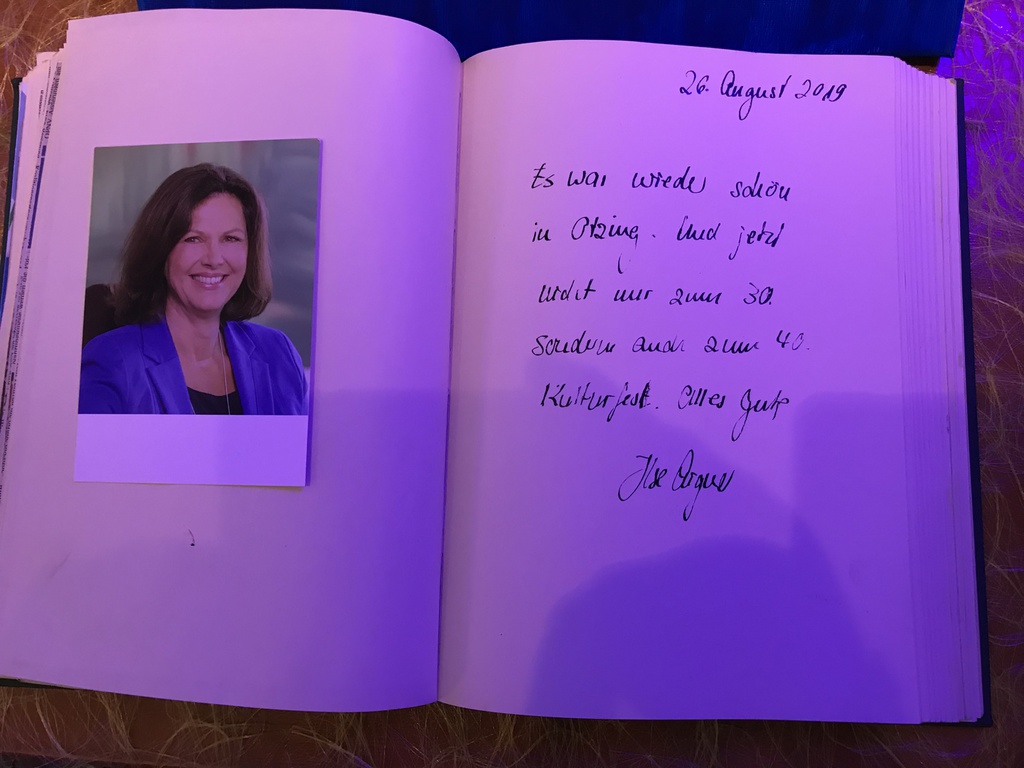 26. August 2019
Es war wieder schön
in Otzing. Und jetzt
nicht nur zum 30.
sondern auch zum 40.
Kulturfest. Alles Gute
Ilse Aigner